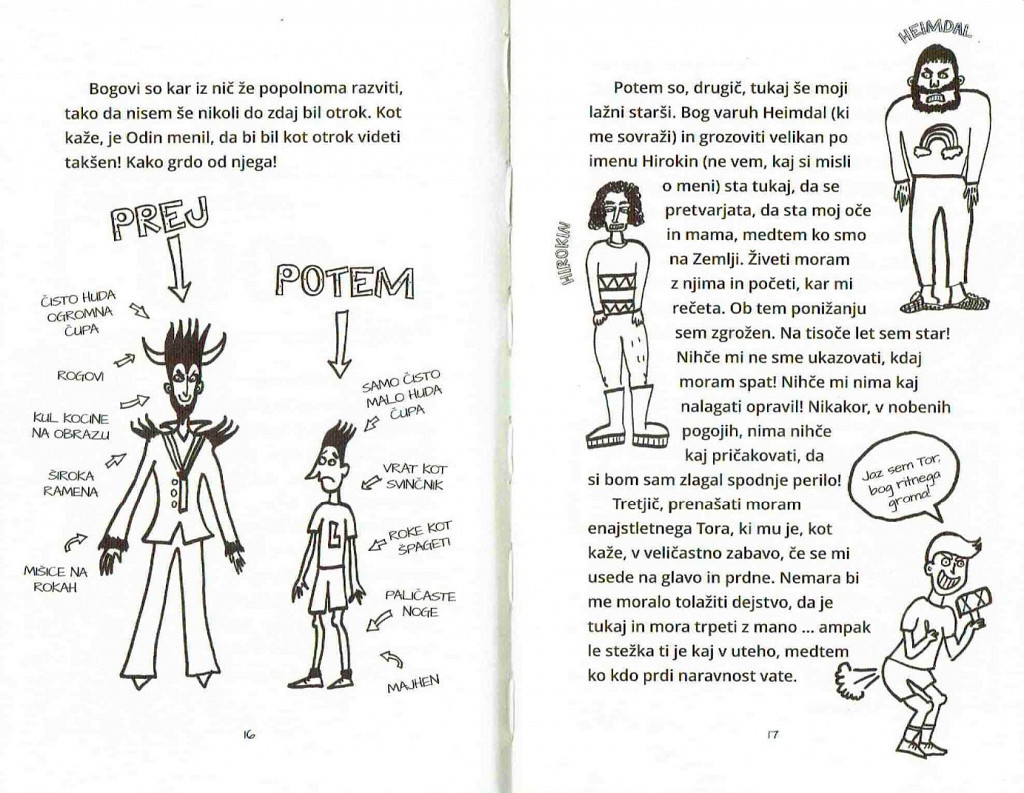 Bogovi so kar iz nič že popolnoma razviti,
tako da nisem še nikoli do zdaj bil otrok. Kot
kaže, je Odin menil, da bi bil kot otrok videti
takšen! Kako grdo od njega!
PREJ
ČISTO HUDA
OGROMNA
ČUPA
ROGOVI
KUL KOCINE
NA OBRAZU
ŠIROKA
RAMENA
MIŠICE NA
ROKAH
POTEM
SAMO ČISTO
MALO HUDA
ČUPA
VRAT KOT
SVINČNIK
L
ROKE KOT
ŠPAGETI
PALIČASTE
NOGE
MAJHEN
16
HEIMDAL
Potem so, drugič, tukaj še moji
lažni starši. Bog varuh Heimdal (ki
me sovraži) in grozoviti velikan po
imenu Hirokin (ne vem, kaj si misli
o meni) sta tukaj, da se
pretvarjata, da sta moj oče
in mama, medtem ko smo
na Zemlji. Živeti moram
z njima in početi, kar mi
rečeta. Ob tem ponižanju
sem zgrožen. Na tisoče let sem star!
Nihče mi ne sme ukazovati, kdaj
moram spat! Nihče mi nima kaj
nalagati opravil! Nikakor, v nobenih
pogojih, nima nihče
kaj pričakovati, da
si bom sam zlagal spodnje perilo!
HIROKIN
Tretjič, prenašati moram
enajstletnega Tora, ki mu je, kot
kaže, v veličastno zabavo, če se mi
usede na glavo in prdne. Nemara bi
me moralo tolažiti dejstvo, da je
tukaj in mora trpeti z mano ... ampak
le stežka ti je kaj v uteho, medtem
ko kdo prdi naravnost vate.
Jaz sem Tor,
bog ritnega
groma!
17